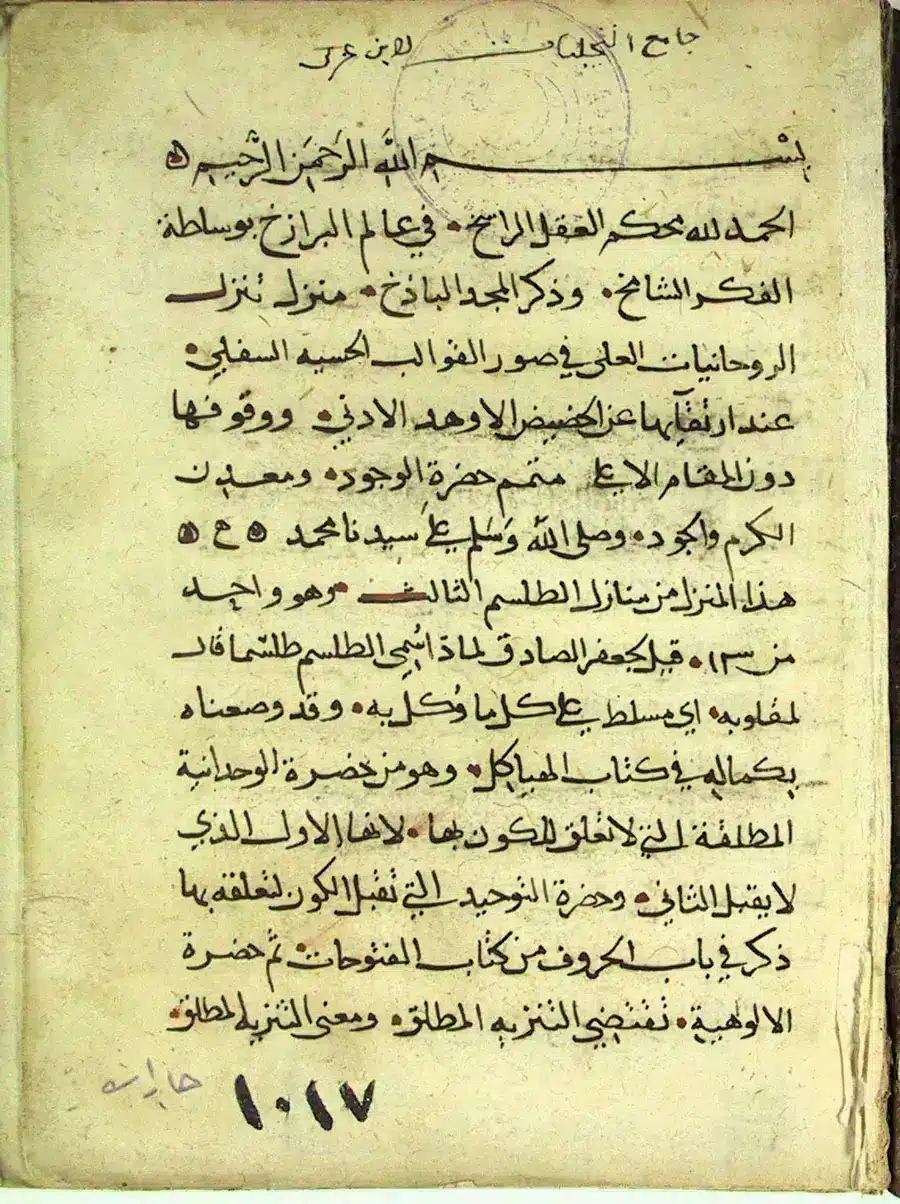 جامع التجليات لابن عربي
بسم الله الرَّحمَن الرَّحيم
الحمد لله محكم العقل الراسخ • في عالم البرازخ بوساطة
الفكر الشامخ • وذكر المجد الباذخ • منزل تنزل
الروحانيات العلى في صور القوالب الحسيه السفلي •
عند ارتقآيها عن الحضيض الاوهد الادني • ووقوفها
دون المقام الاعلي متمم حضرة الوجود • ومعدن
الكرم والجود • وصلى الله وَسَلم علَي سيدنا محمد
هذا المنزل من منازل الطلسم الثالث • وهو واحد
من ١٣ • قيل لجعفر الصادق لماذا سُمي الطلسم طلسما قال
لمقلوبه • اي مسلط علي كل ما وُكل به • وقد وصعناه
بكماله في كتاب الهياكل • وهو من حضرة الوحدانية
المطلقة التي لا تعلق للكون بها • لانها الاول الذي
لا يقبل الثاني • وحضرة التوحيد التي تقبل الكون لتعلقه بها
ذكر في باب الحروف من كتاب الفتوحات • ثم حضرة
الالوهية • تقتضي التنزيه المطلق • ومعنى التنزيه المطلق •
١٠١٧